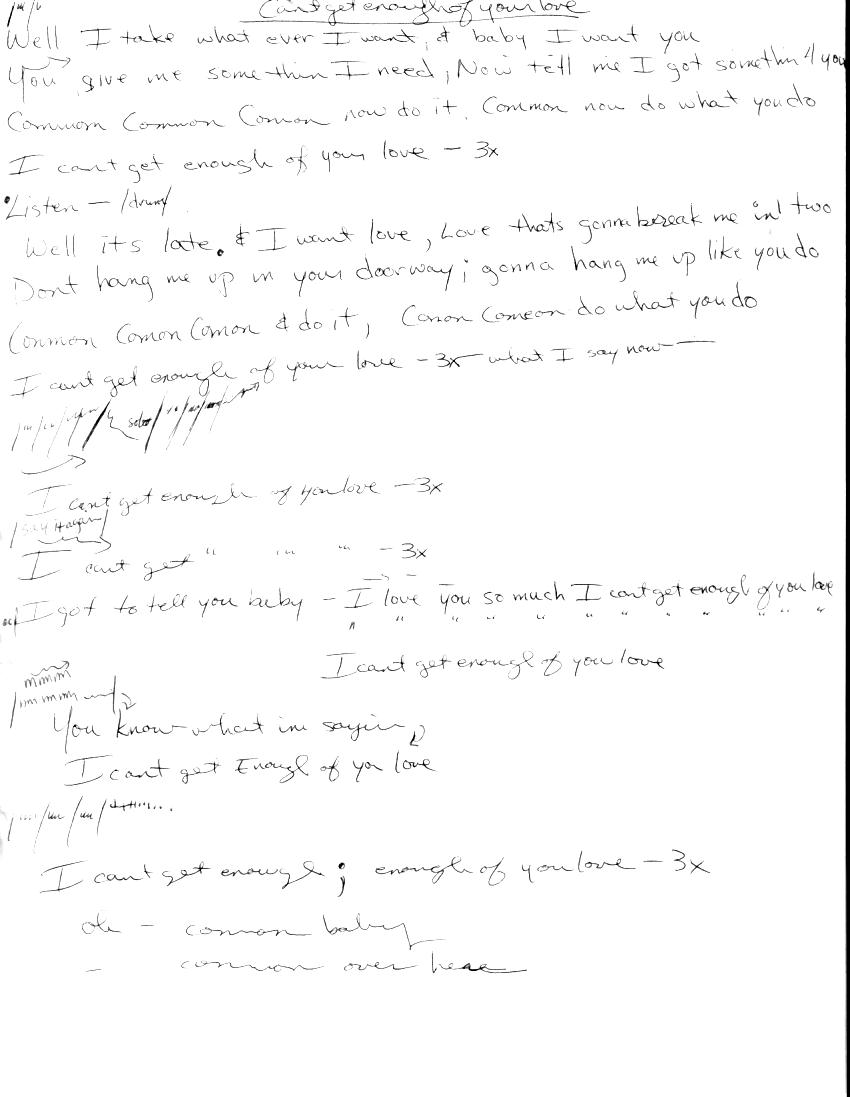 Can't get enough of your love
Well I take what ever I want, & baby I want you
You give me somethin I need, Now tell me I got somethin 4 you
Common Common Comon now do it. Common now do what you do
I can't get enough of your love - 3x
Listen - /drum/
Well its late. & I want love, Love thats gonna break me in two
Dont hang me up in your doorway; gonna hang me up like you do
Common Comon Comon & do it, Comon Comeon do what you do
I can't get enough of your love - 3x what I say now
solo
I can't get enough of you love - 3x
I cant get " " " - 3x
I got to tell you baby - I love you so much I cant get enough of you love
" " " " " " " " " " "
I cant get enough of you love
mmmm
You know what im sayin
I cant get Enough of you love
I cant get enough; enough of you love - 3x
oh - common baby
- common over here